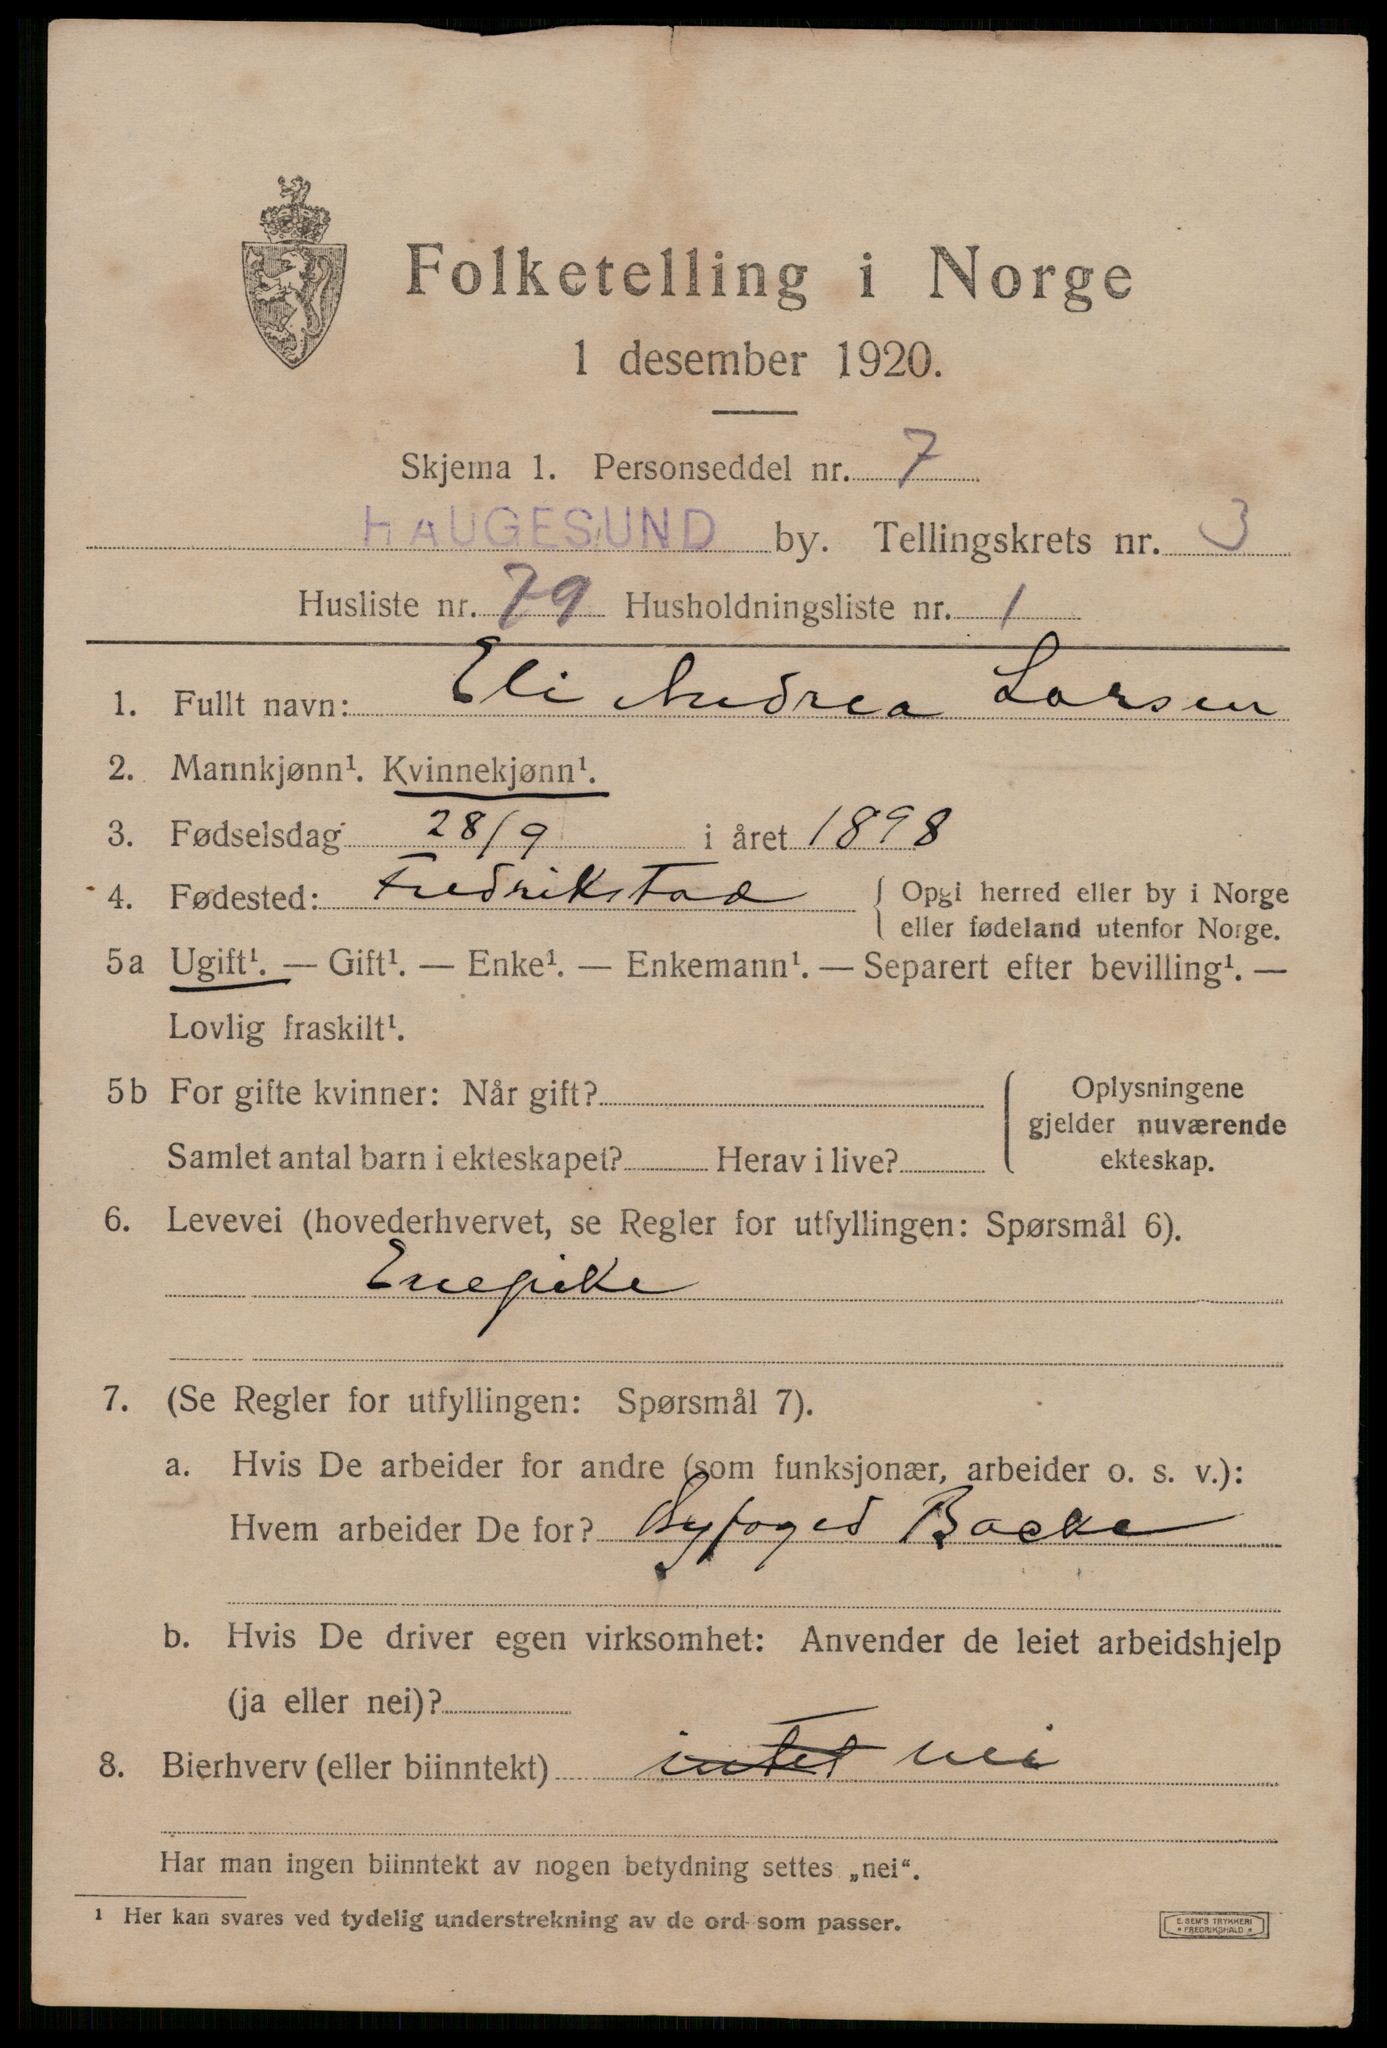 Folketelling i Norge
1 desember 1920.
Skjema 1. Personseddel nr. 7
HAUGESUND by. Tellingskrets nr. 3
Husliste nr. 79 Husholdningsliste nr. 1
1. Fullt navn: Eli Andrea Larsen
2. Mannkjønn¹. Kvinnekjønn¹.
3. Fødselsdag 28/9 i året 1898
4. Fødested: Fredrikstad { Opgi herred eller by i Norge
eller fødeland utenfor Norge.
5a Ugift¹. — Gift¹. — Enke¹. — Enkemann¹. — Separert efter bevilling¹. —
Lovlig fraskilt¹.
5b For gifte kvinner: Når gift?
Samlet antal barn i ekteskapet? Herav i live?
Oplysningene
gjelder nuværende
ekteskap.
6. Levevei (hovederhvervet, se Regler for utfyllingen: Spørsmål 6).
Enepike
7. (Se Regler for utfyllingen: Spørsmål 7).
a. Hvis De arbeider for andre (som funksjonær, arbeider o. s. v.):
Hvem arbeider De for? Byfoged Backe
b. Hvis De driver egen virksomhet: Anvender de leiet arbeidshjelp
(ja eller nei)?
8. Bierhverv (eller biinntekt) intet nei
Har man ingen biinntekt av nogen betydning settes „nei“.
¹ Her kan svares ved tydelig understrekning av de ord som passer.
E. SEM'S TRYKKERI
* FREDRIKSHALD *